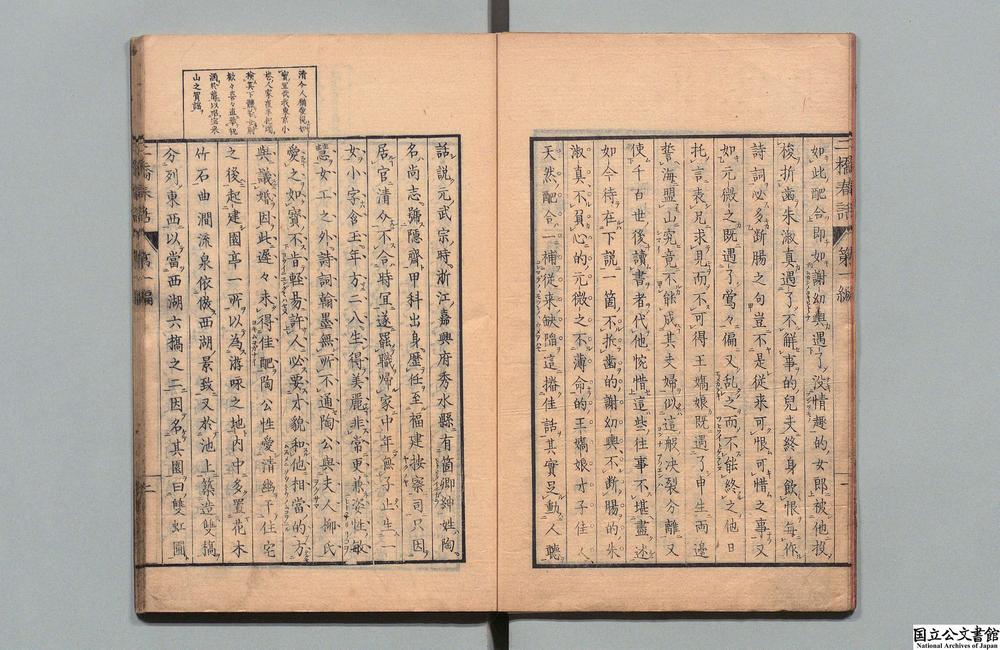 如此配合即如謝幼輿遇了沒情趣的女郎被他投
梭折齒朱淑真遇了不觧事的兒夫終身飲恨每作
詩詞必多斷腸之句豈不是從来可恨可惜之事又
如元微之既遇了鶯々偏又乱之而不能終之他日
托言表兄求見而不可得王嬌娘既遇了申生両邉
誓海盟山究竟不能成其夫婦似這般决裂分離又
使千百世後讀書者代他惋惜這些往事不堪盡述
如今待在下說一箇不折齒的謝幼輿不斷腸的朱
淑真不負心的元微之不薄命的王嬌娘才子佳人
天然配合一補從来缺陥這播佳話其實足動人聽
三橋春話
第一編
話說元武宗時浙江嘉興府秀水縣有箇卿紳姓陶
名尚志號隱齋甲科出身歷任至福建按察司只因
居官清介不合時宜遂罷職歸家中年無子止生一
女小字含玉年方二八生得美麗非常更兼姿性敏
慧女工之外詩詞翰墨無所不通陶公與夫人柳氏
愛之如寳不肯輕易許人必要才貌和他相當的方
與議婚因此遲々未得佳配陶公性愛清幽于住宅
之後起建園亭一所以為游咏之地内中多置花木
竹石曲澗流泉依倣西湖景致又於池上築造雙橋
分列東西以當西湖六橋之二因名其園曰雙虹圃
山之買話
第一編
二
国立公文書館
National Archives of Japan